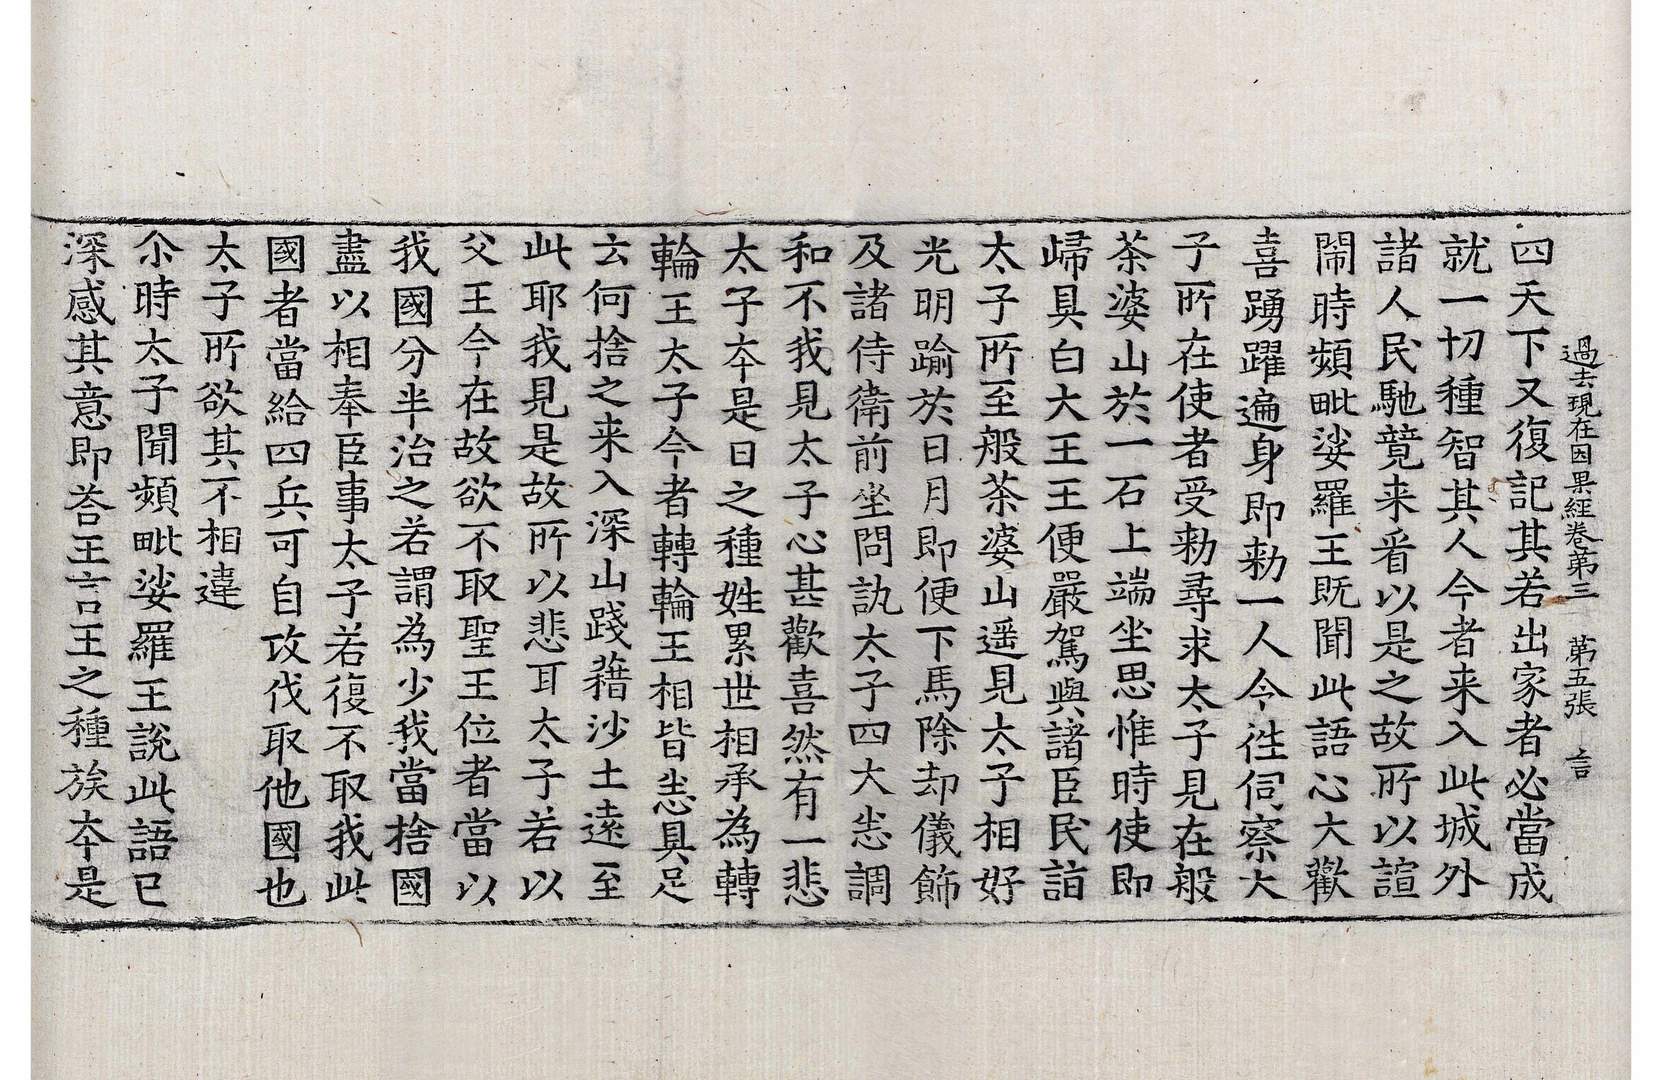 過去現在因果經卷第三　第五張　言
四天下又復記其若出家者必當成
就一切種智其人今者来入此城外
諸人民馳競来看以是之故所以諠
閙時頻毗娑羅王既聞此語心大歡
喜踴躍遍身即勑一人令徃伺察太
子所在使者受勑尋求太子見在般
茶婆山於一石上端坐思惟時使即
歸具白大王王便嚴駕與諸臣民詣
太子所至般茶婆山遥見太子相好
光明踰於日月即便下馬除却儀飾
及諸侍衛前坐問訊太子四大悉調
和不我見太子心甚歡喜然有一悲
太子夲是日之種姓累世相承為轉
輪王太子今者轉輪王相皆悉具足
云何捨之来入深山踐藉沙土遠至
此耶我見是故所以悲耳太子若以
父王今在故欲不取聖王位者當以
我國分半治之若謂為少我當捨國
盡以相奉臣事太子若復不取我此
國者當給四兵可自攻伐取他國也
太子所欲其不相違
尒時太子聞頻毗娑羅王說此語已
深感其意即荅王言王之種族夲是